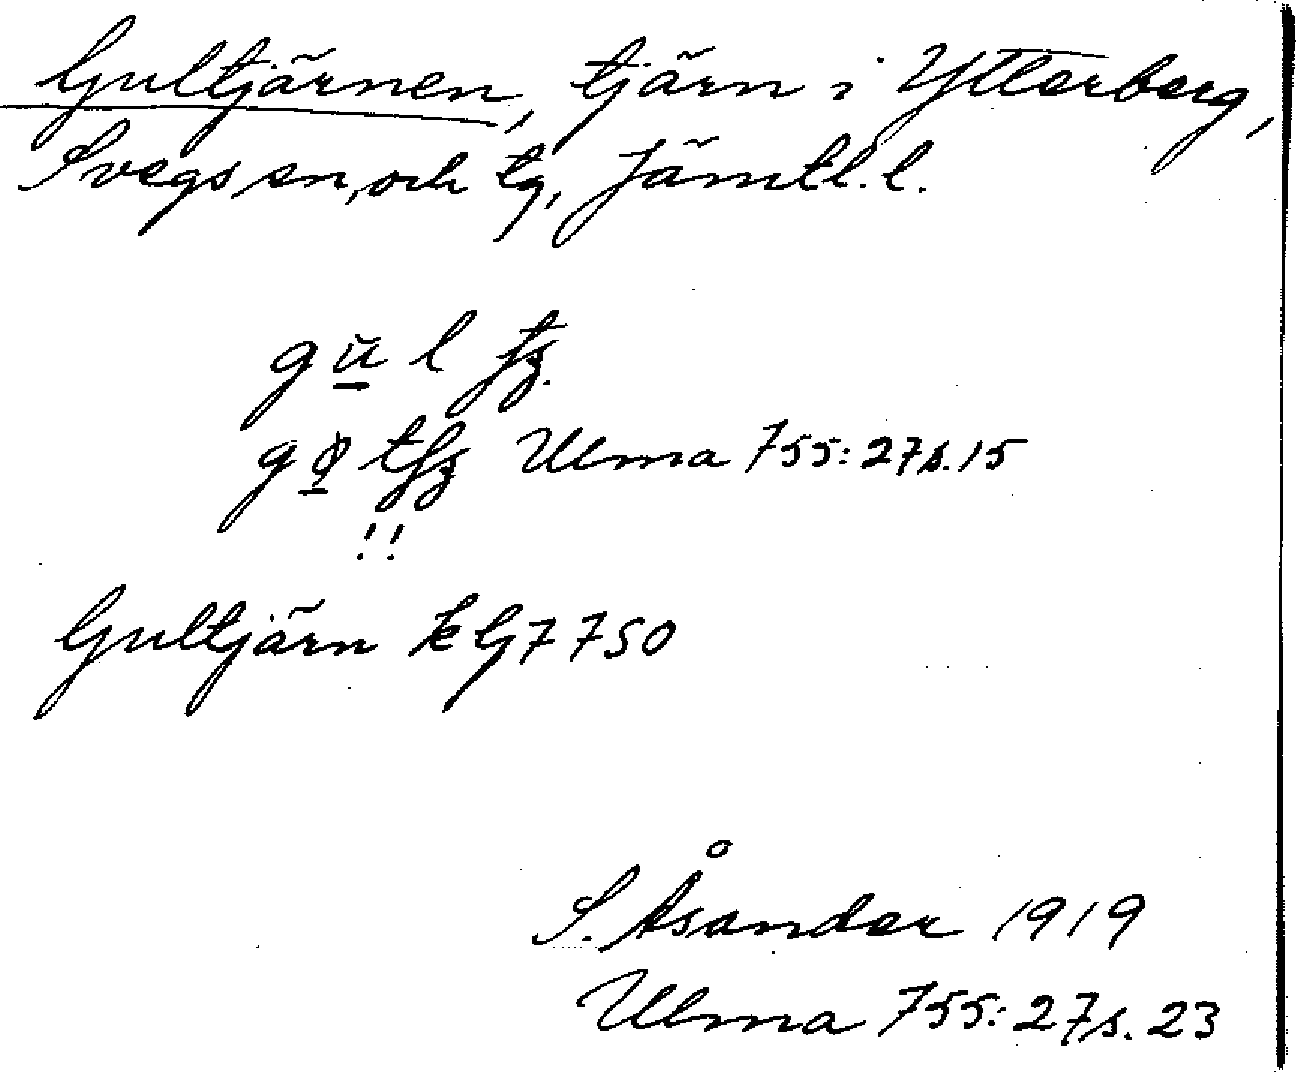 Gultjärnen, tjärn i Ytterberg,
Svegs sn, och tg, Jämtl. l.
Ulma 755:27 s. 15
!!
Gultjärn k G7 750
S. Åsander 1919
Ulma 755:27 s. 23